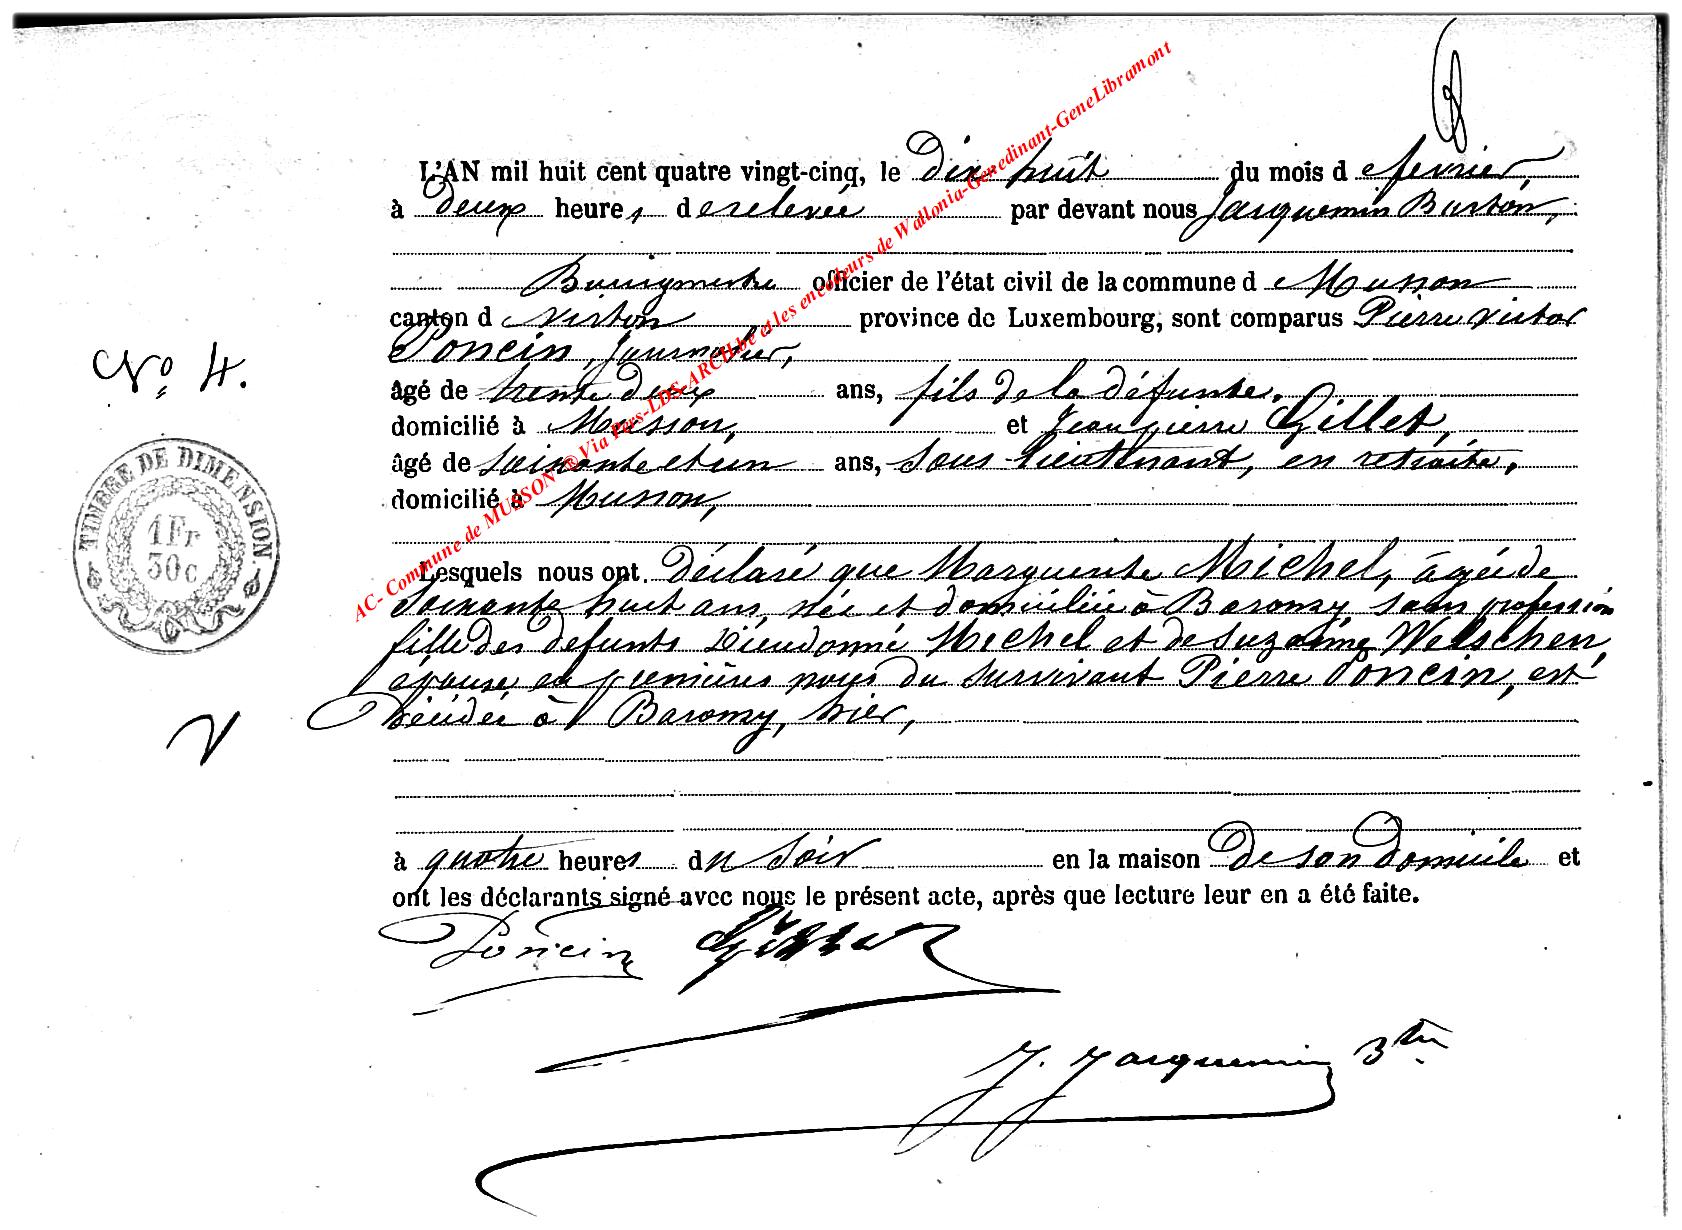 L'AN mil huit cent quatre vingt-cinq, le dix huit du mois de fevrier,
à deux heures de relevée par devant nous Jacquemin Burton,
Bourgmestre officier de l'état civil de la commune de Musson
canton d virton province de Luxembourg, sont comparus Pierre victor
Poncin, Journalier,
N° 4.
âgé de trente deux ans, fils de la défunte.
domicilié à Musson, et Jean pierre Gillet,
âgé de soixante et un ans, sous lieutenant, en retraite,
domicilié à Musson,
TIMBRE DE DIMENSION
1 Fr
30 c
Lesquels nous ont déclaré que Marguerite Michel, âgée de
soixante huit ans, née et domiciliée à Baranzy sans profession
fille des defunts Dieudonné Michel et de Suzanne Welschen,
épouse en premières noces du survivant Pierre Poncin, est
décédée à Baranzy, hier,
à quatre heures du soir en la maison de son domicile et
ont les déclarants signé avec nous le présent acte, après que lecture leur en a été faite.
Poncin Gillet
J. Jacquemin Btn
AC- Commune de MUSSON-®Via Pers-LDS-ARCH.be et les encodeurs de Wallonia-Genedinant-GeneLibramont